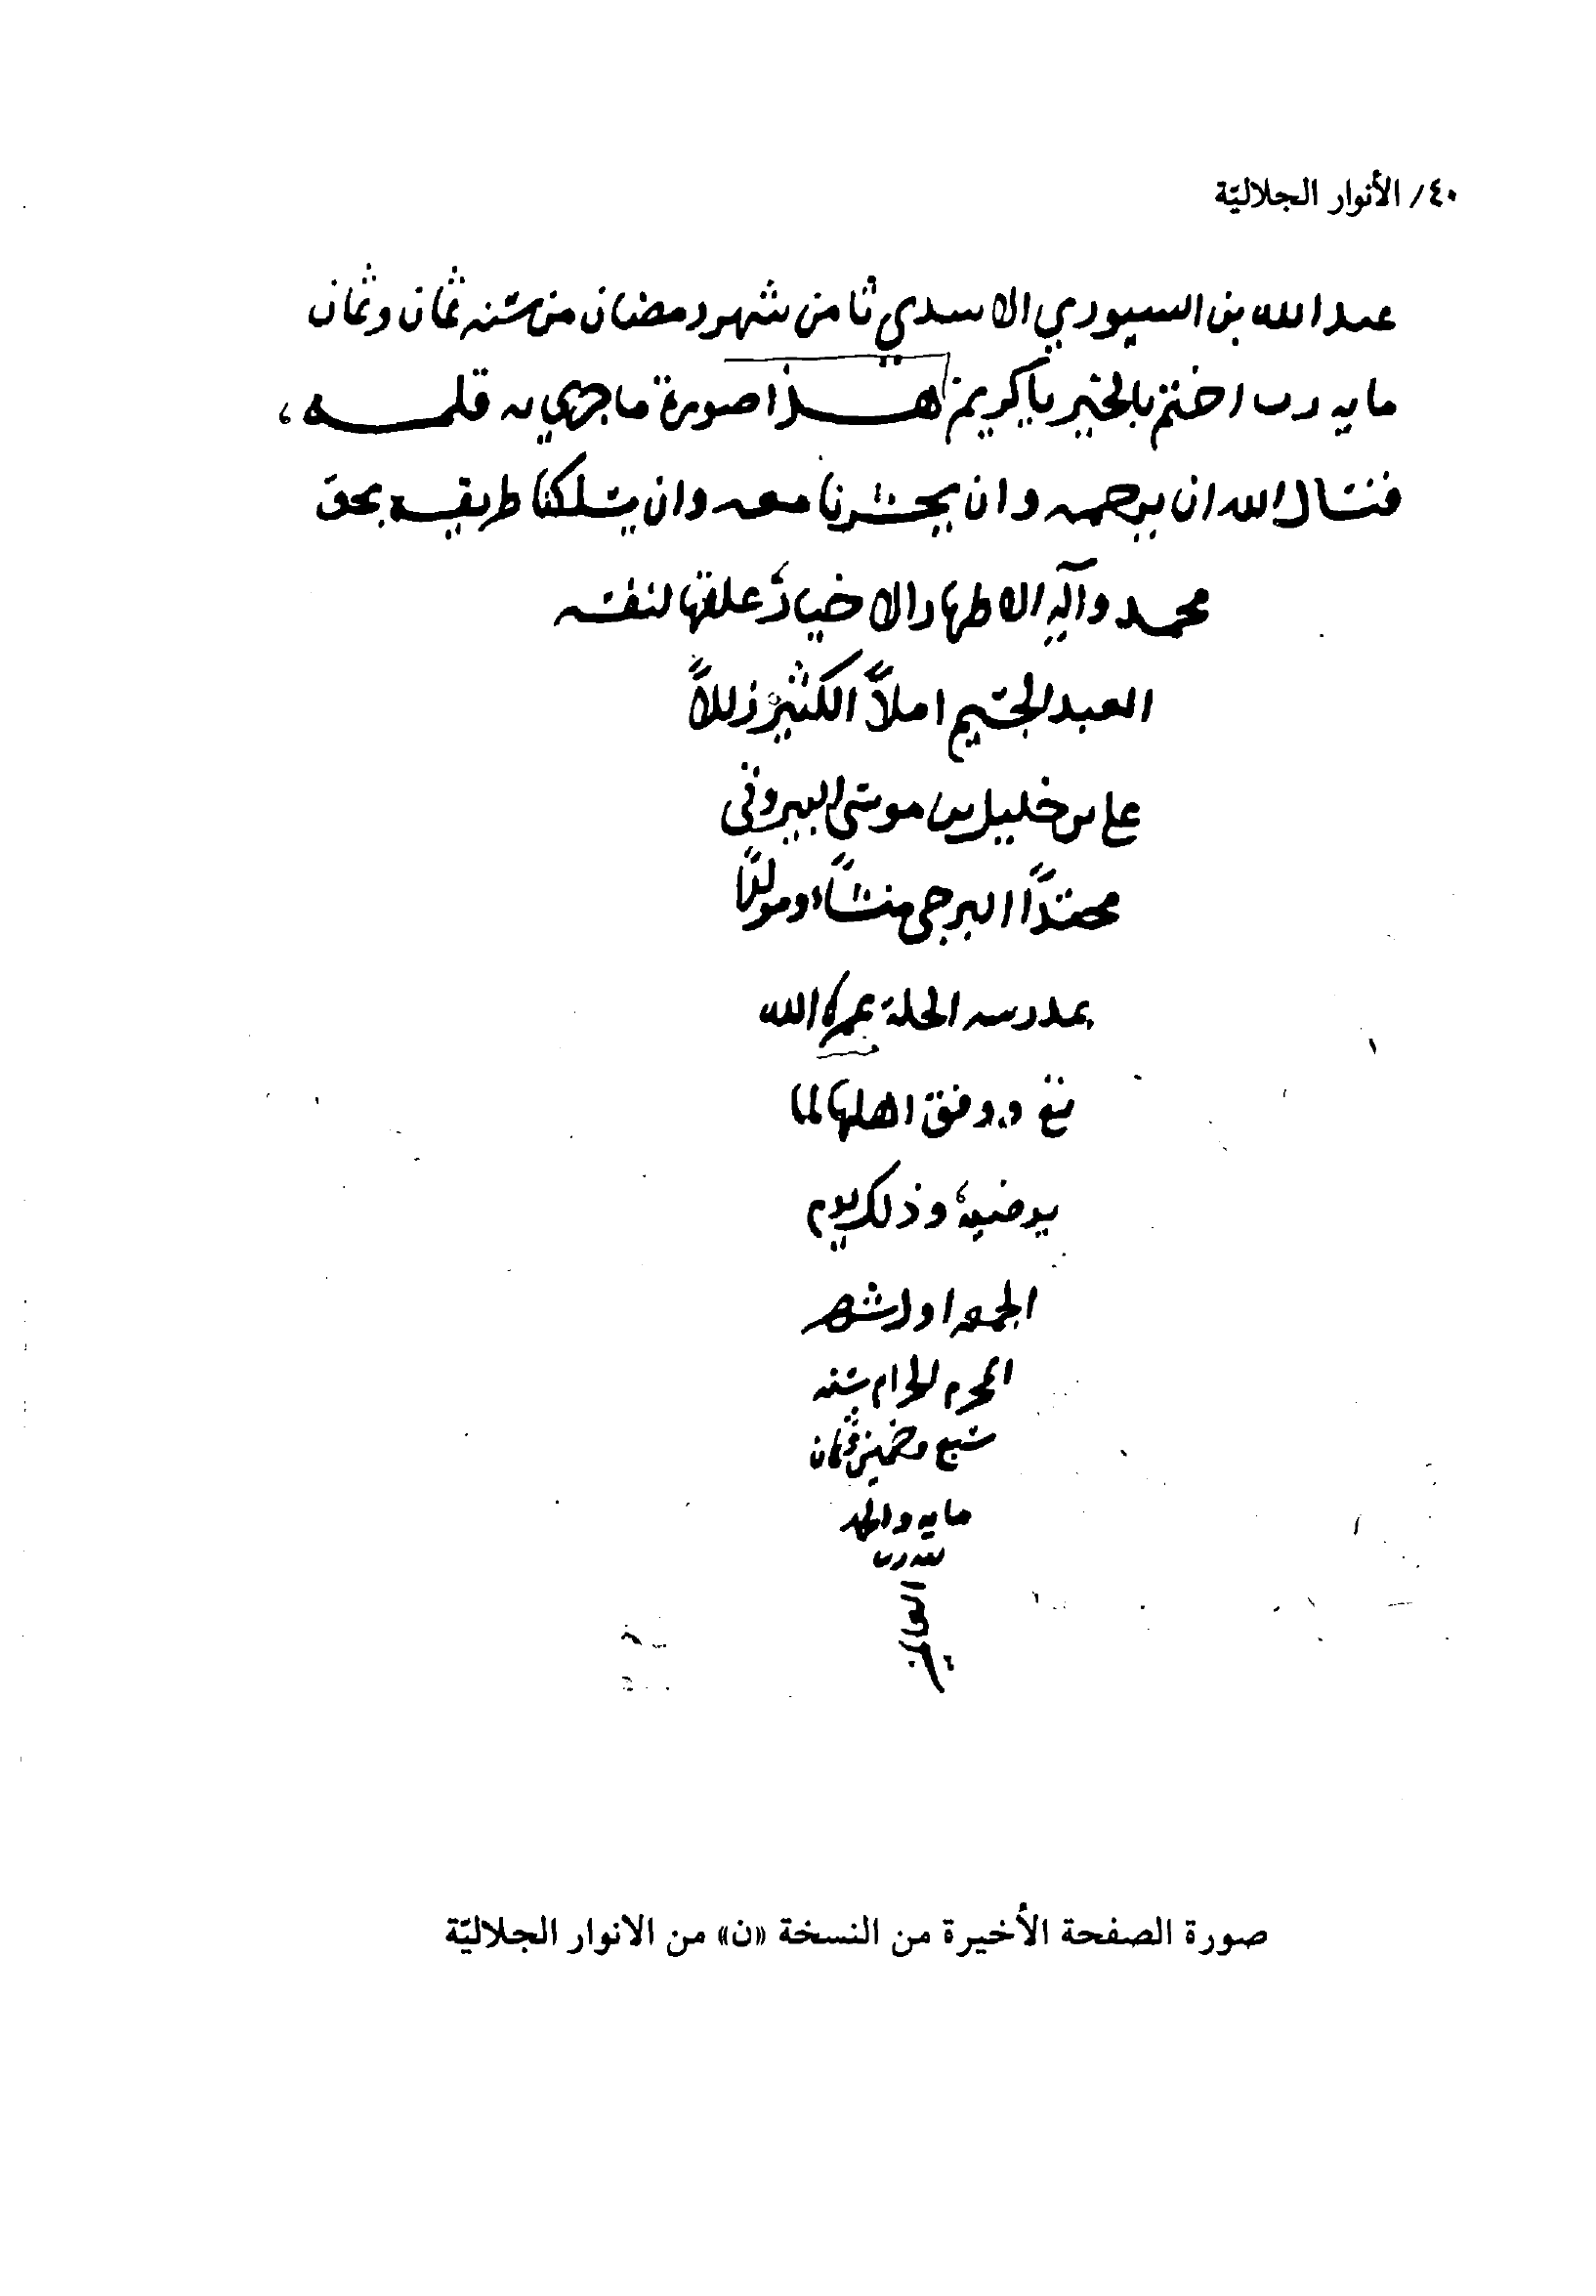 ٤٠/ الأنوار الجلاليّة
عبدالله بن السيوري الاسدي ثامن شهر رمضان من سنه ثمان وثمان
مايه رب اختم بالخير ياكريم هذا صورة ما جري به قلمه،
فنسال الله ان يرحمه وان يحشرنا معه وان يسلكنا طريقه بحق
محمد وآله الاطهار الاخيار علقها لنفسه
العبد الجسيم املاً الكثير زللاً
علي بن خليل بن موسى البيروتي
محتداً البرجي منشاء ومولداً
بمدرسه الحلة عمرها الله
تع ووفق اهلها لما
يرضيه وذلك يوم
الجمعه اول شهر
المحرم الحرام سنه
سبع وخمسين ثمان
مايه والحمد
لله رب
العالمين
صورة الصفحة الأخيرة من النسخة «ن» من الانوار الجلاليّة